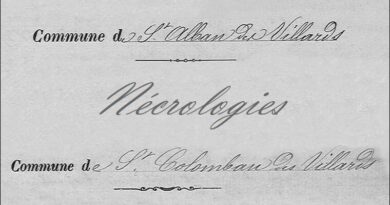 Commune de St Alban des Villards
Nécrologies
Commune de St Colomban des Villards